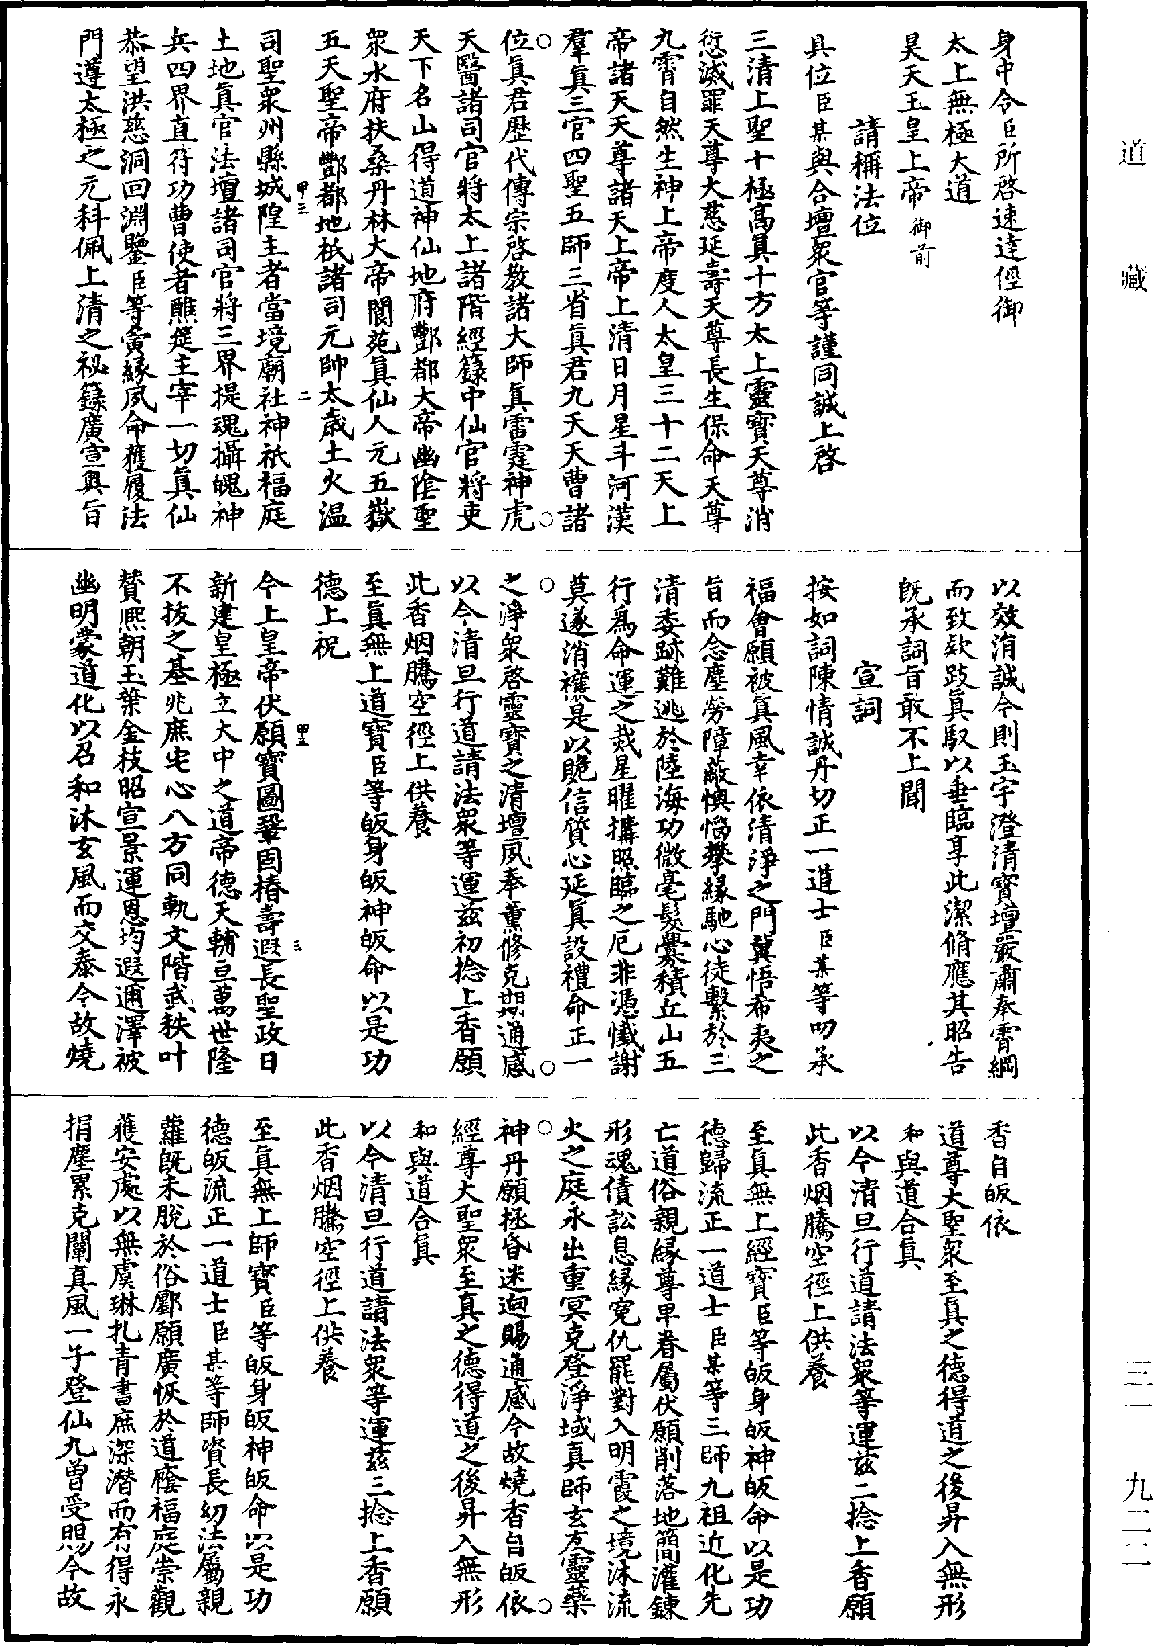 道藏
三一　九二二
身中令臣所啓速達徑御
太上無極大道
昊天玉皇上帝御前
請稱法位
具位臣某與合壇衆官等謹同誠上啓
三清上聖十極高眞十方太上靈寳天尊消
愆滅罪天尊大慈延壽天尊長生保命天尊
九霄自然生神上帝度人太皇三十二天上
帝諸天天尊諸天上帝上清日月星斗河漢
羣眞三官四聖五師三省眞君九天天曹諸
位眞君歷代傳宗啓教諸大師眞雷霆神虎
天醫諸司官將太上諸階經籙中仙官將吏
天下名山得道神仙地府酆都大帝幽陰聖
衆水府扶桑丹林大帝閬苑眞仙人元五嶽
五天聖帝酆都地祇諸司元帥太歲土火温
司聖衆州縣城隍主者當境廟社神祇福庭
土地眞官法壇諸司官將三界提魂攝魄神
兵四界直符功曹使者醮筵主宰一切眞仙
恭望洪慈洞回淵鑒臣等夤緣夙命獲履法
門遵太極之元科佩上清之祕籙廣宣輿旨
以效消誠今則玉宇澄清寳壇嚴肅奉霄綱
而致欵跂眞馭以垂臨享此潔脩應其昭告
既承詞旨敢不上聞
宣詞
按如詞陳情誠丹切正一道士臣某等叨承
福會願被眞風幸依清淨之門冀悟希夷之
旨而念塵勞障蔽懊惱攀緣馳心徒繫於三
清委跡難逃於陸海功微毫髮釁積丘山五
行爲命運之烖星曜搆照臨之厄非憑懴謝
莫遂消禳是以賲信質心延眞設禮命正一
之淨衆啓靈寳之清壇夙奉薰修克期通感
以今清旦行道請法衆等運兹初捻上香願
此香烟騰空徑上供養
至眞無上道寳臣等皈身皈神皈命以是功
德上祝
今上皇帝伏願寳圖鞏固椿壽遐長聖政日
新建皇極立大中之道帝德天輔亘萬世隆
不拔之基兆庶宅心八方同軌文階武秩叶
賛熈朝玉葉金枝昭宣景運恩均遐邇澤被
幽明蒙道化以召和沐玄風而交泰今故燒
香自皈依
道尊大聖衆至真之德得道之後昇入無形
和與道合真
以今清旦行道請法衆等運兹二捻上香願
此香烟騰空徑上供養
至真無上經寳臣等皈身皈神皈命以是功
德歸流正一道士臣某等三師九祖近化先
亡道俗親緣尊卑眷屬伏願削落地簡灌錬
形魂債訟息緣寃仇罷對入明霞之境沐流
火之庭永出重冥克登淨域真師玄友靈藥
神丹願拯昏迷迴賜通感今故燒香自皈依
經尊大聖衆至真之德得道之後昇入無形
和與道合真
以今清旦行道請法衆等運兹三捻上香願
此香烟騰空徑上供養
至真無上師寳臣等皈身皈神皈命以是功
德皈流正一道士臣某等師資長幼法屬親
蘿既未脫於俗鄽願廣恢於道廕福庭崇觀
獲安處以無虞琳札青書庶深潛而有得永
捐塵累克闡真風一子登仙九曾受賜今故